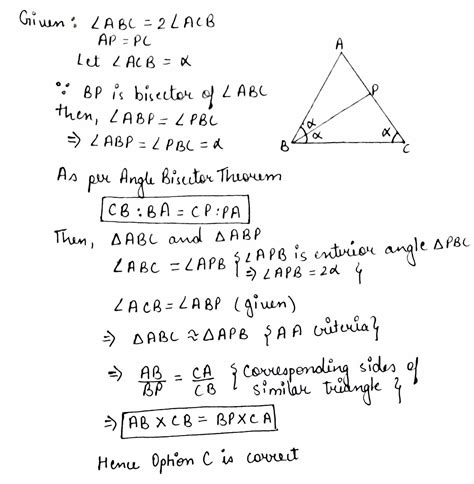 Given: ∠ABC = 2∠ACB
AP = PC
Let ∠ACB = α
∵ BP is bisector of ∠ABC
then, ∠ABP = ∠PBC
⇒ ∠ABP = ∠PBC = α
A
P
B
C
α
α
α
As per Angle Bisector Theorem
CB : BA = CP : PA
Then, △ABC and △ABP
∠ABC = ∠APB { ∠APB is enterior angle △PBC
⇒ ∠APB = 2α }
∠ACB = ∠ABP (given)
⇒ △ABC ≈ △APB { AA criteria }
⇒ AB/BP = CA/CB { Corresponding sides of
similar triangle }
⇒ AB × CB = BP × CA
Hence Option C is correct